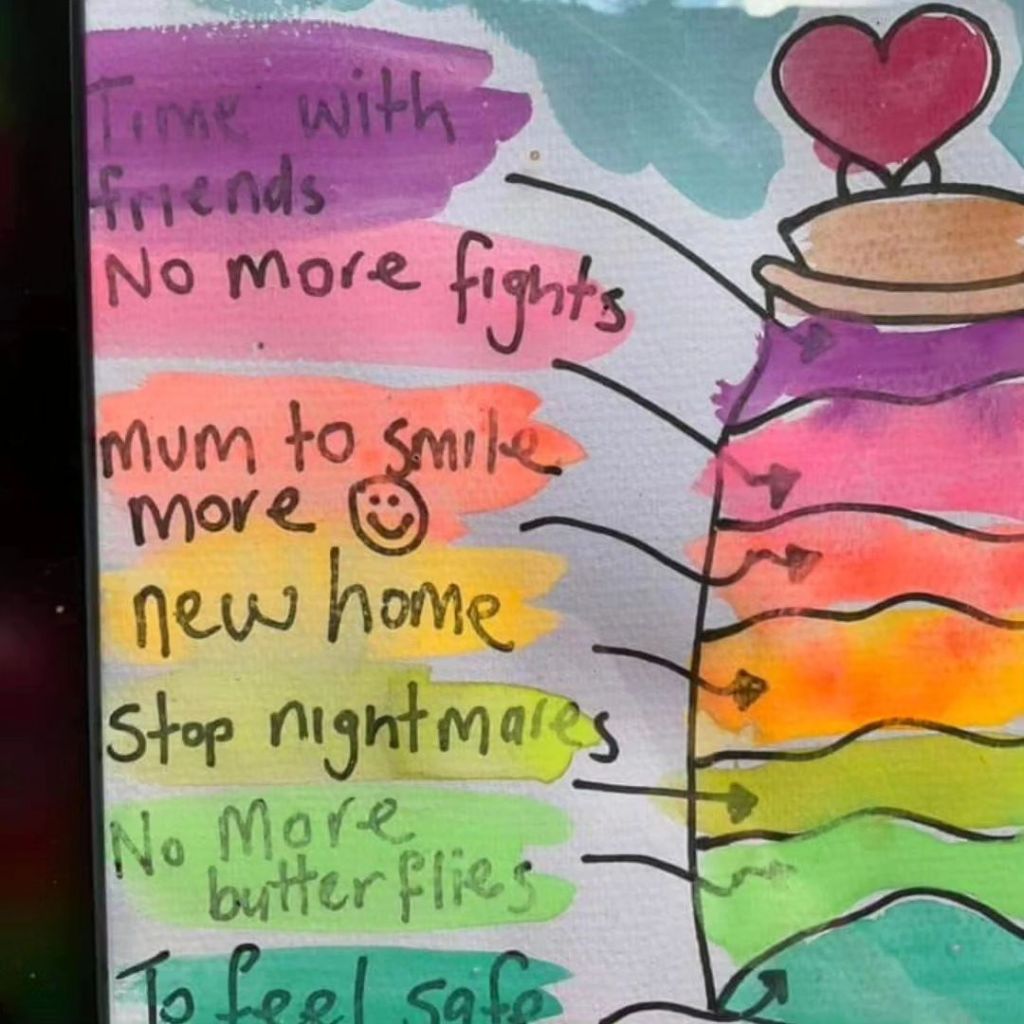 Time with
friends
No more fights
mum to smile
more
new home
Stop nightmares
No More
butterflies
To feel safe